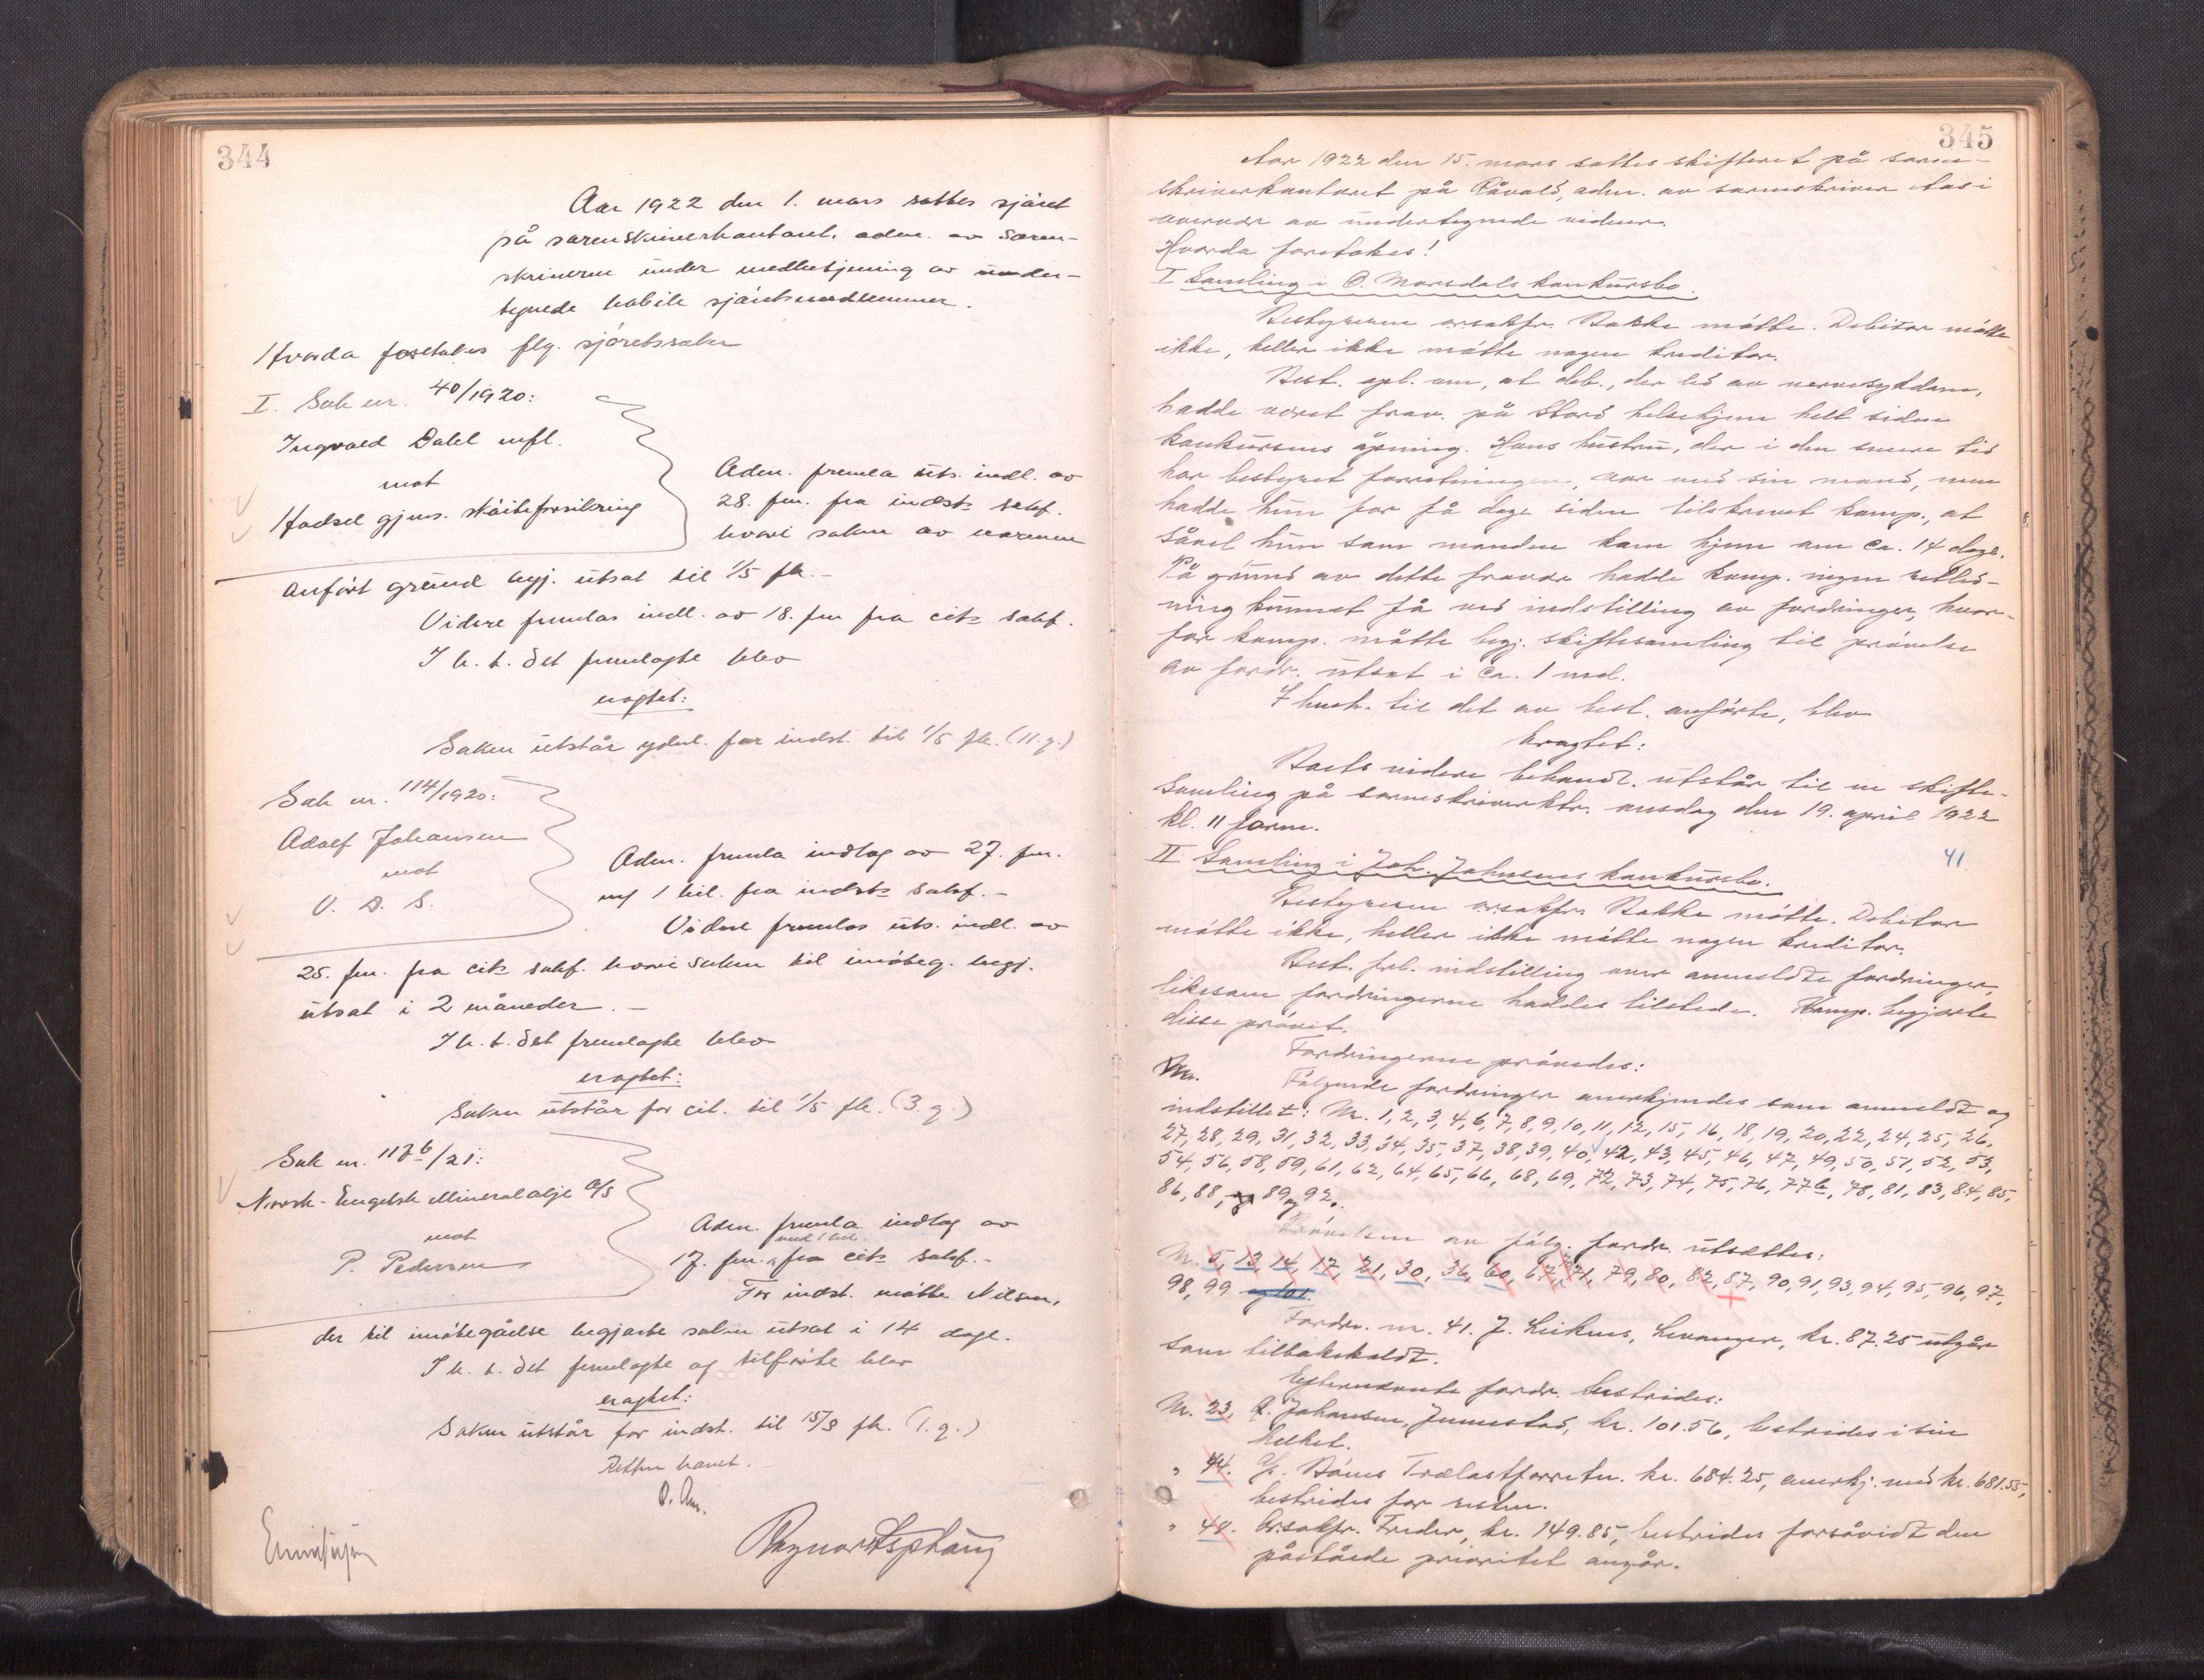 344
Aar 1922 den 1. mars sattes sjøret
på sorenskriverkontoret, adm. av soren-
skriveren under medbetjening av under-
tegnede habile sjøretsmedlemmer.
Hvorda foretakes flg. sjøretssaker
I. Sak nr. 40/1920:
Ingvald Dahl mfl.
mot
Hadsel gjens. skøiteforsikring
Adm. fremla uts. indl. av
28. fm. fra indst.s sakf.
hvori saken av nærmere
anført grund begj. utsat til 1/5 fk.-
Videre fremlas indl. av 18. fm fra cit.s sakf.
I h. t. det fremlagte blev
eragtet:
Saken utstår yderl. for indst. til 1/5 fk. (11. g.)
Sak nr. 114/1920:
Adolf Johansen
mot
V. D. S.
Adm. fremla indlæg av 27. fm.
m/ 1 bil. fra indst.s sakf.-
Videre fremlas uts. indl. av
25. fm. fra cit.s sakf. hvori saken til imøteg. begj.
utsat i 2 måneder.-
I h. t. det fremlagte blev
eragtet:
Saken utstår for cit. til 1/5 fk. (3. g.)
Sak nr. 117b/21:
Norsk-Engelsk Mineralolje A/S
mot
P. Pedersen
Adm. fremla indlæg av
med 1 bil.
17. fm. fra cit.s sakf.-
For indst. møtte Nilsen,
der til imøtegåelse begjærte saken utsat i 14 dage.
I h. t. det fremlagte og tilførte blev
eragtet:
Saken utstår for indst. til 15/3 fk. (1. g.)
Retten hævet.
O. Aas.
Ragnar Asphaug
345
Aar 1922 den 15. mars sattes skifteret på soren-
skriverkontoret på Råvald, adm. av sorenskriver Aas i
overvær av undertegnede vidner.
Hvorda foretakes!
I Samling i O. Marsdals konkursbo.
Bestyreren o.r.sakfr. Bakke møtte. Debitor møtte
ikke, heller ikke møtte nogen kreditor.
Best. opl. om, at deb., der led av nervesykdom,
hadde været frav. på Stord helsehjem helt siden
konkursens åpning. Hans hustru, der i den senere tid
har bestyret forretningen, var med sin mand, men
hadde hun for få dage siden tilskrevet komp., at
såvel hun som manden kom hjem om ca. 14 dage.
På grund av dette fravær hadde komp. ingen veiled-
ning kunnet få ved indstilling av fordringer, hvor-
for komp. måtte begj. skiftesamling til prøvelse
av fordr. utsat i ca. 1 md.
I henh. til det av best. anførte, blev
eragtet:
Boets videre behandl. utstår til en skifte-
samling på sorenskriverktr. onsdag den 19. april 1922
kl. 11 form.
II Samling i Joh. Johnsens konkursbo.
41.
Bestyreren o.r.sakfr. Bakke møtte. Debitor
møtte ikke, heller ikke møtte nogen kreditor.
Best. frl. indstilling over anmeldte fordringer,
likesom fordringerne haddes tilstede. Komp. begjærte
disse prøvet.
Fordringerne prøvedes:
Nr. Følgende fordringer anerkjendes som anmeldt og
indstillet: Nr. 1, 2, 3, 4, 6, 7, 8, 9, 10, 11, 12, 15, 16, 18, 19, 20, 22, 24, 25, 26,
27, 28, 29, 31, 32, 33, 34, 35, 37, 38, 39, 40, 42, 43, 45, 46, 47, 49, 50, 51, 52, 53,
54, 56, 58, 59, 61, 62, 64, 65, 66, 68, 69, 72, 73, 74, 75, 76, 77b, 78, 81, 83, 84, 85,
86, 88, 89 og 92.
Prøvelsen av følg. fordr. utsættes:
Nr. 5, 13, 14, 17, 21, 30, 36, 60, 67, 71, 79, 80, 82, 87, 90, 91, 93, 94, 95, 96, 97,
98, 99 og 101.
Fordr. nr. 41. J. Leiknes, Levanger, kr. 87.25 utgår
som tilbakekaldt.
Efternævnte fordr. bestrides:
Nr. 23, J. Johansen, Jennestad, kr. 101.56, bestrides i sin
helhet.
" 44. A/S. Bønes Trælastforretn. kr. 684.25, anerkj. med kr. 681.55,
bestrides for resten.
" 48. O.r.sakfr. Freder, kr. 149.85, bestrides forsåvidt den
påståede prioritet angår.